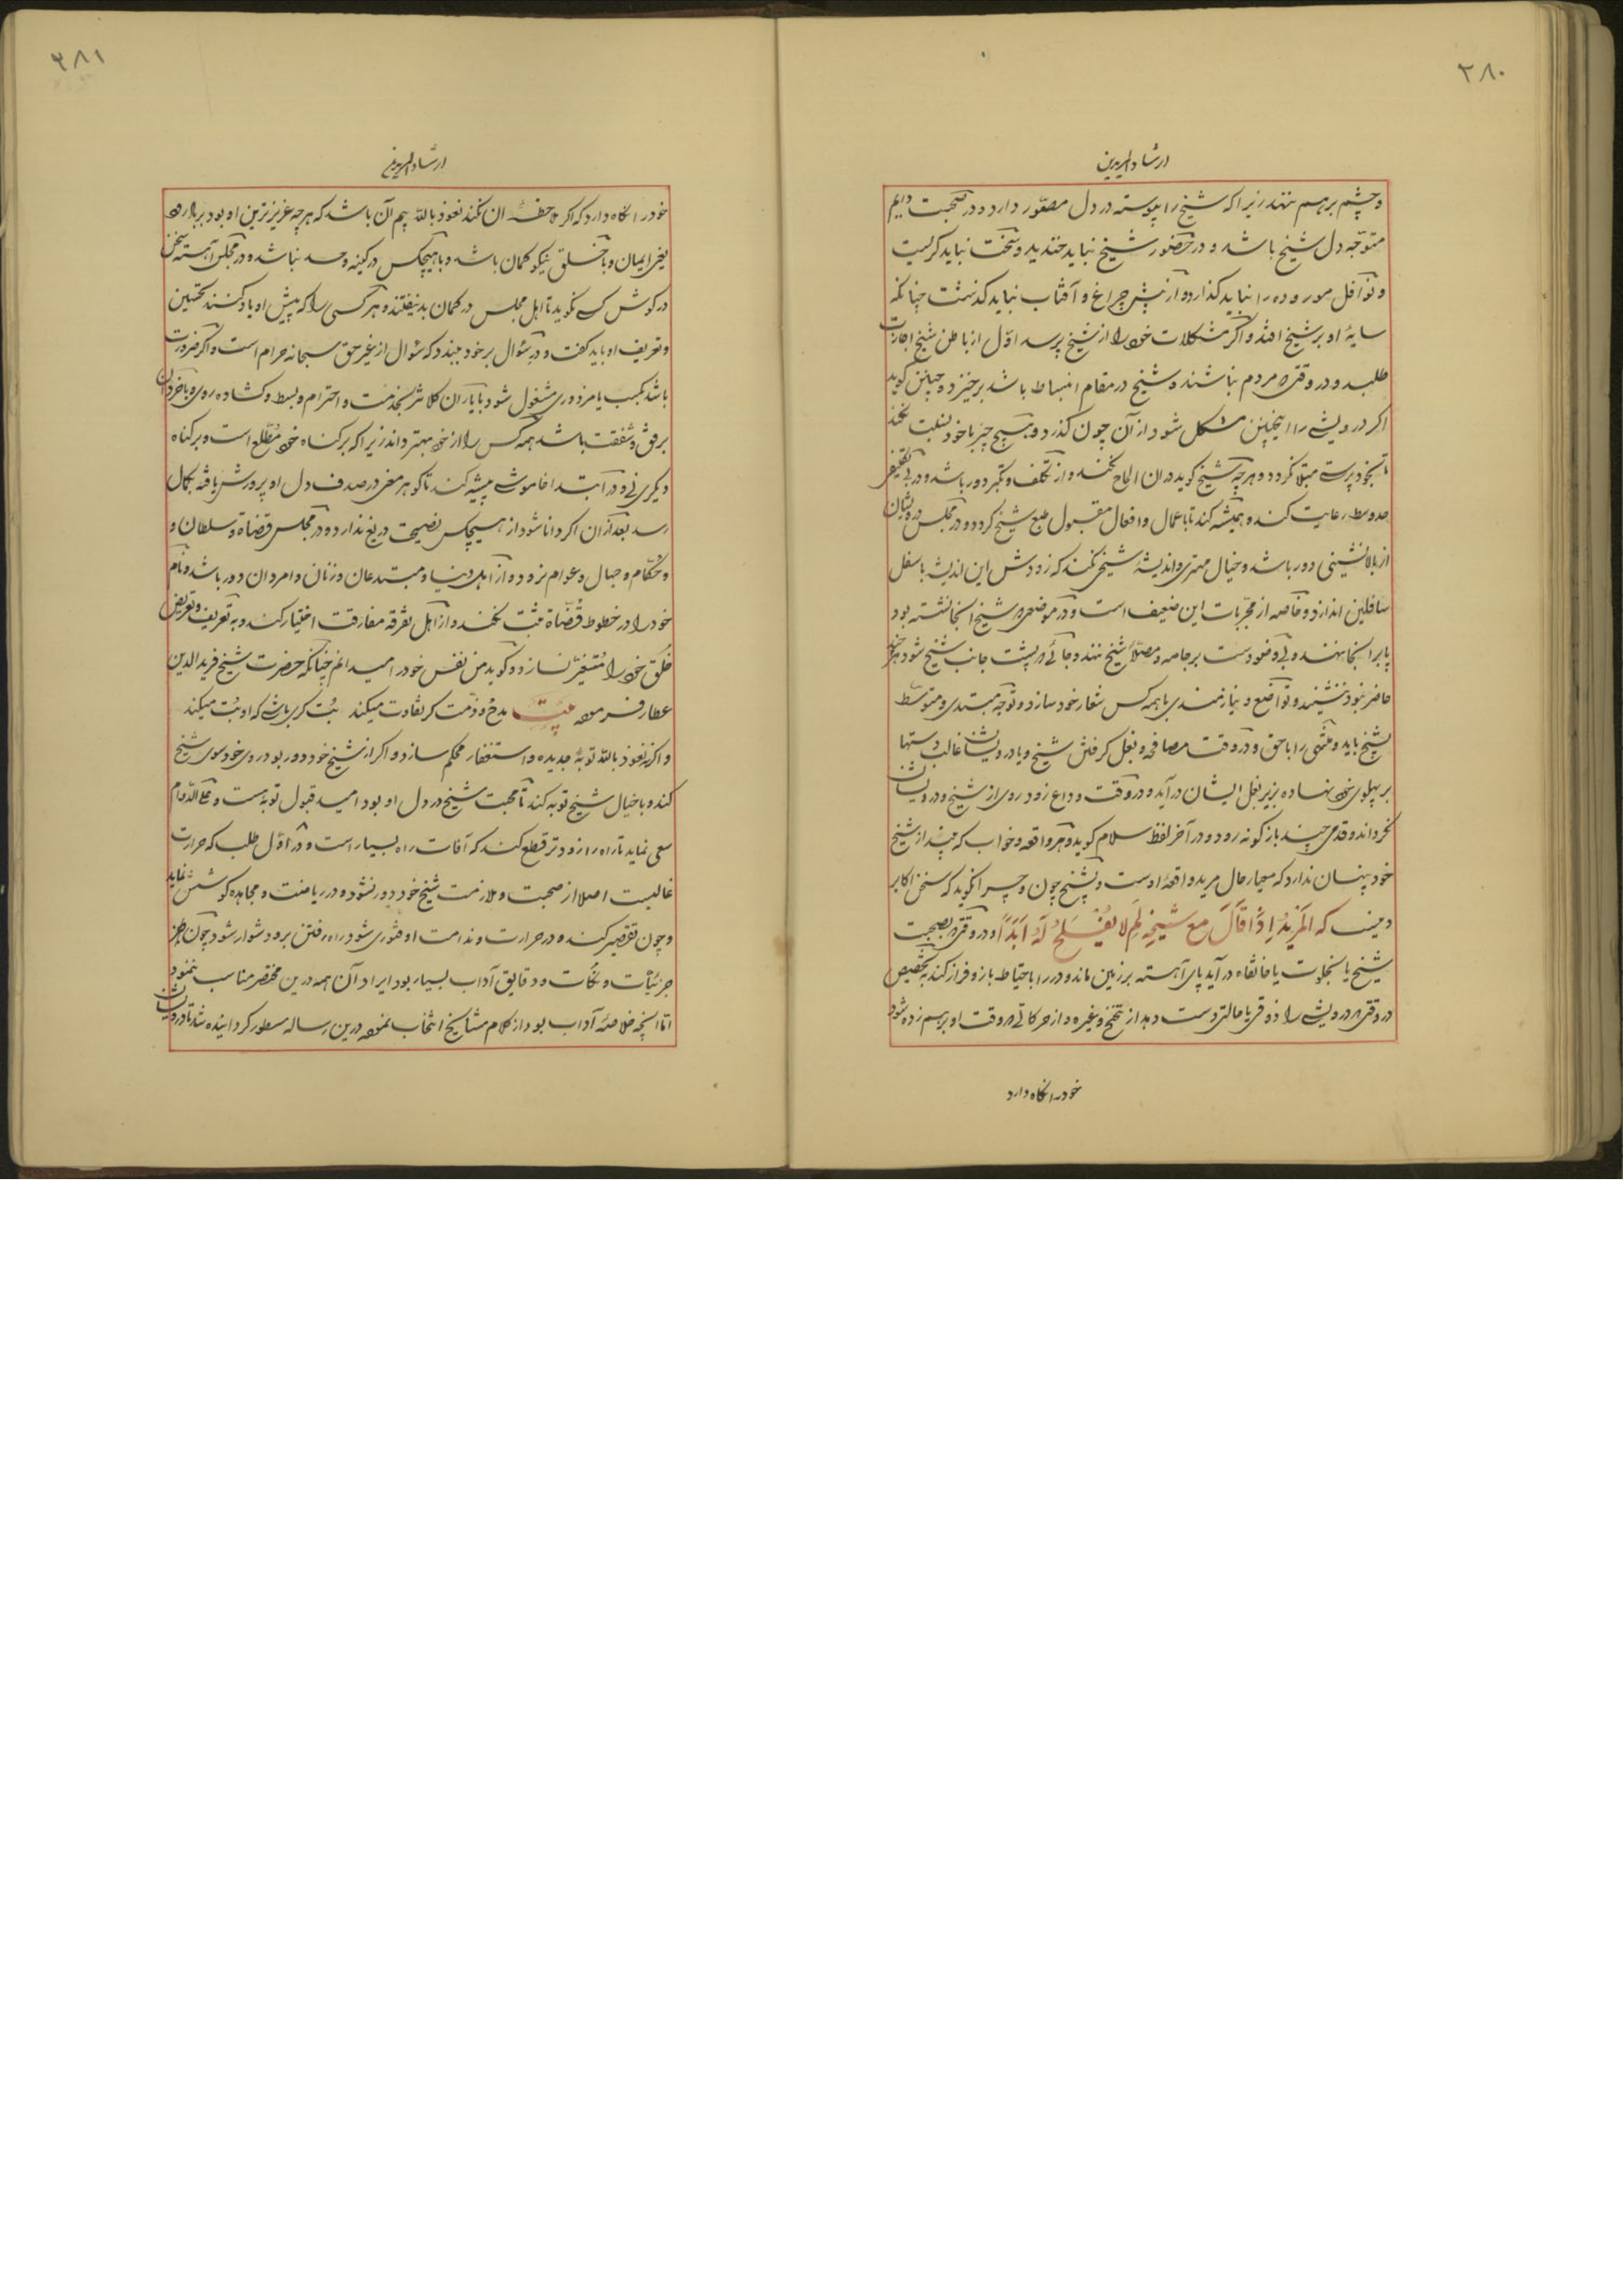 ۲۸۰
ارشاد المریدین
و چشم برهم ننهد زیرا که شیخ را پیوسته در دل مصوّر دارد و در صحبت دایم
متوجّه دل شیخ باشد و در حضور شیخ نباید خندید و سخت نباید کریست
و نوافل مورود را نباید کذارد و از پیش چراغ و آفتاب نباید کذشت چنانکه
سایهٔ او بر شیخ افتد و اکر مشکلات خود را از شیخ پرسد اوّل از باطن شیخ اجازت
طلبد و در وقتی که مردم نباشند و شیخ در مقام انبساط باشد برخیزد و چنین کوید
اکر درویشی را اینچنین مشکل شود از آن چون کذرد و هیچ چیز با خود نسبت نکند
تا بخودپرستی مبتلا نکردد و هر چه شیخ کوید در ان الحاح نکند و از تکلف و تکبر دور باشد و در بی تقصیر
حد وسط رعایت کند و همیشه کند تا باعمال و افعال مقبول طبع شیخ کردد و در مجلس درویشان
از بالانشینی دور باشد و خیال مهتری و اندیشهٔ شیخی نکند که زودش این اندیشه باسفل
سافلین اندازد و خاصه از مجرّبات این ضعیف است و در موضعی که شیخ انجا نشسته بود
پا برانجا ننهد و بی وضو دست بر جامه و مصلّای شیخ ننهد و جائی که پشت جانب شیخ شود هر چند
حاضر نبود ننشیند و تواضع و نیازمندی با همه کس شعار خود سازد و توجه مبتدی و متوسّط
بشیخ باید و منتهی را با حق و در وقت مصافحه و بغل کرفتن شیخ و یا درویشان غالب دستها
بر پهلوی خود نهاده بزیر بغل ایشان درآید و در وقت وداع زود روی از شیخ و درویشان
نکرداند و قدمی چند بازکونه رود و در آخر لفظ سلام کوید و هر واقعه و خواب که بیند از شیخ
خود پنهان ندارد که معیار حال مرید واقعهٔ اوست و بشیخ چون و چرا نکوید که سخن اکابر
دینست که اَلمُرِیدُ اِذَا قَالَ مَعَ شَیخِهِ لِمَ لا یُفلِحُ لَهُ اَبَدًا و در وقتی که بصحبت
شیخ یا بخلوت یا خانقاه درآید پای آهسته بر زمین ماند و در را باحتیاط باز و فراز کند بتخصیص
در وقتی که درویشی را ذوقی یا حالتی دست دهد از تنحنح و غیره و از حرکاتی که وقت او برهم زده شود
خود را نکاه دارد
۲۸۱
ارشاد المریدین
خود را نکاه دارد که اکر ملاحظهٔ ان نکند نعوذ بالله بیم آن باشد که هر چه عزیزترین او بود بر باد رود
یعنی ایمان و با خلق نیکو کمان باشد و با هیچکس در کینه و حسد نباشد و در مجلس آهسته سخن
در کوش کسی نکوید تا اهل مجلس در کمان بد نیفتند و هر کسی را که پیش او یاد کنند تحسین
و تعریف او باید کفت و در سؤال بر خود ببندد که سؤال از غیر حق سبحانه حرام است و اکر ضرورت
باشد بکسب یا مزدوری مشغول شود با یاران کلانتر بخدمت و احترام و بسط و کشاده روی و با خردان
برفق و شفقت باشد همه کس را از خود بهتر داند زیرا که بر کناه خود مُطّلع است و بر کناه
دیکری نی و در ابتدا خاموشی پیشه کند تا کوهر معنی در صدف دل او پرورش یافته بکمال
رسد بعد ازان اکر دانا شود از هیچکس نصیحت دریغ ندارد و در مجلس قضاة و سلطان و
و حکّام و جهال و عوام نرود و از اهل دنیا و مبتدعان و زنان و امردان دور باشد و نام
خود را در خطوط قُضّاة ثبت نکند و از اهل تفرقه مفارقت اختیار کند و به تعریف و تعریض
خلق خود را مُتغیّر نسازد و کوید من نفس خود را میدانم چنانکه حضرت شیخ فرید الدین
عطار فرموده بیت مدح و ذمّت کر تفاوت میکند بُت کری باشی که او بُت میکند
و اکر نه نعوذ بالله توبهٔ جدیده و استغفار محکم سازد و اکر از شیخ خود دور بود روی خود سوی شیخ
کند و با خیال شیخ توبه کند تا محبت شیخ در دل او بود امید قبول توبه است و علی الدّوام
سعی نماید تا راه را زودتر قطع کند که آفات راه بسیار است و در اوّل طلب که حرارت
غالبست اصلا از صحبت و ملازمت شیخ خود دور نشود و در ریاضت و مجاهده کوشش نماید
و چون تقصیر کند و در حرارت و ندامت او فتوری شود راه رفتن برو دشوار شود چون
جزئیّات و نکات و دقایق آداب بسیار بود ایراد آن همه درین مختصر مناسب ننمود
امّا انچه خلاصهٔ آداب بود از کلام مشایخ انتخاب نموده درین رساله مسطور کردانیده شد تا درویشان